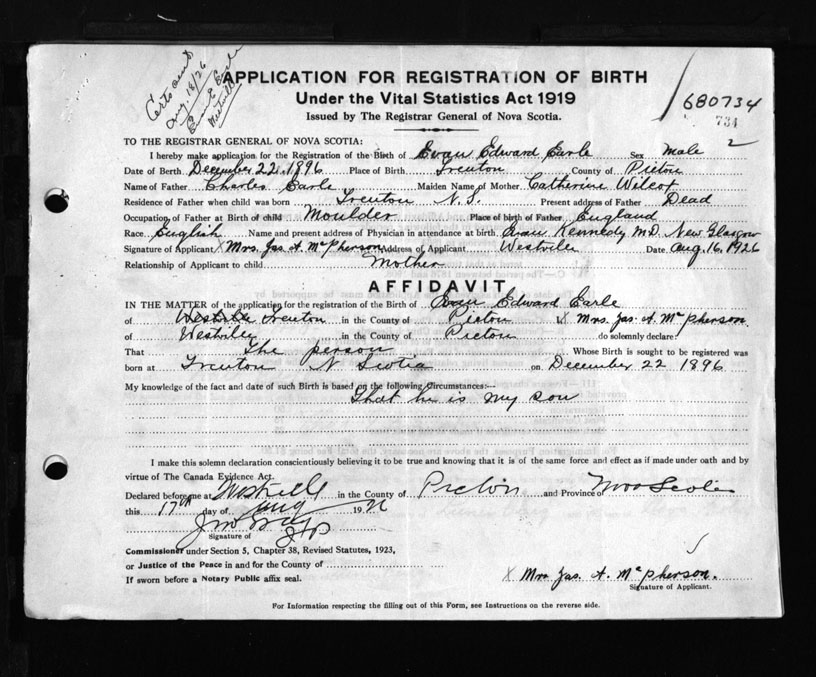 Certs sent
Aug. 18/26
Evan E. Earle
Westville
APPLICATION FOR REGISTRATION OF BIRTH
Under the Vital Statistics Act 1919
Issued by The Registrar General of Nova Scotia.
680734
734
2
TO THE REGISTRAR GENERAL OF NOVA SCOTIA:
I hereby make application for the Registration of the Birth of Evan Edward Earle Sex Male
Date of Birth December 22, 1896 Place of Birth Trenton County of Pictou
Name of Father Charles Earle Maiden Name of Mother Catherine Wilcox
Residence of Father when child was born Trenton N.S. Present address of Father Dead
Occupation of Father at Birth of child Moulder Place of birth of Father England
Race English Name and present address of Physician in attendance at birth Evan Kennedy M.D. New Glasgow
Signature of Applicant X Mrs. Jas. A. McPherson Address of Applicant Westville Date Aug. 16, 1926
Relationship of Applicant to child Mother
AFFIDAVIT
IN THE MATTER of the application for the registration of the Birth of Evan Edward Earle
of Westville Trenton in the County of Pictou X Mrs. Jas. A. McPherson
of Westville in the County of Pictou do solemnly declare:
That The person Whose Birth is sought to be registered was
born at Trenton N Scotia on December 22 1896
My knowledge of the fact and date of such Birth is based on the following Circumstances:—
That he is my son
I make this solemn declaration conscientiously believing it to be true and knowing that it is of the same force and effect as if made under oath and by
virtue of The Canada Evidence Act.
Declared before me at Westville in the County of Pictou and Province of Nova Scotia
this 17th day of Aug 1926
JP
Signature of
Commissioner under Section 5, Chapter 38, Revised Statutes, 1923,
or Justice of the Peace in and for the County of
If sworn before a Notary Public affix seal.
X Mrs Jas. A. McPherson.
Signature of Applicant.
For Information respecting the filling out of this Form, see Instructions on the reverse side.